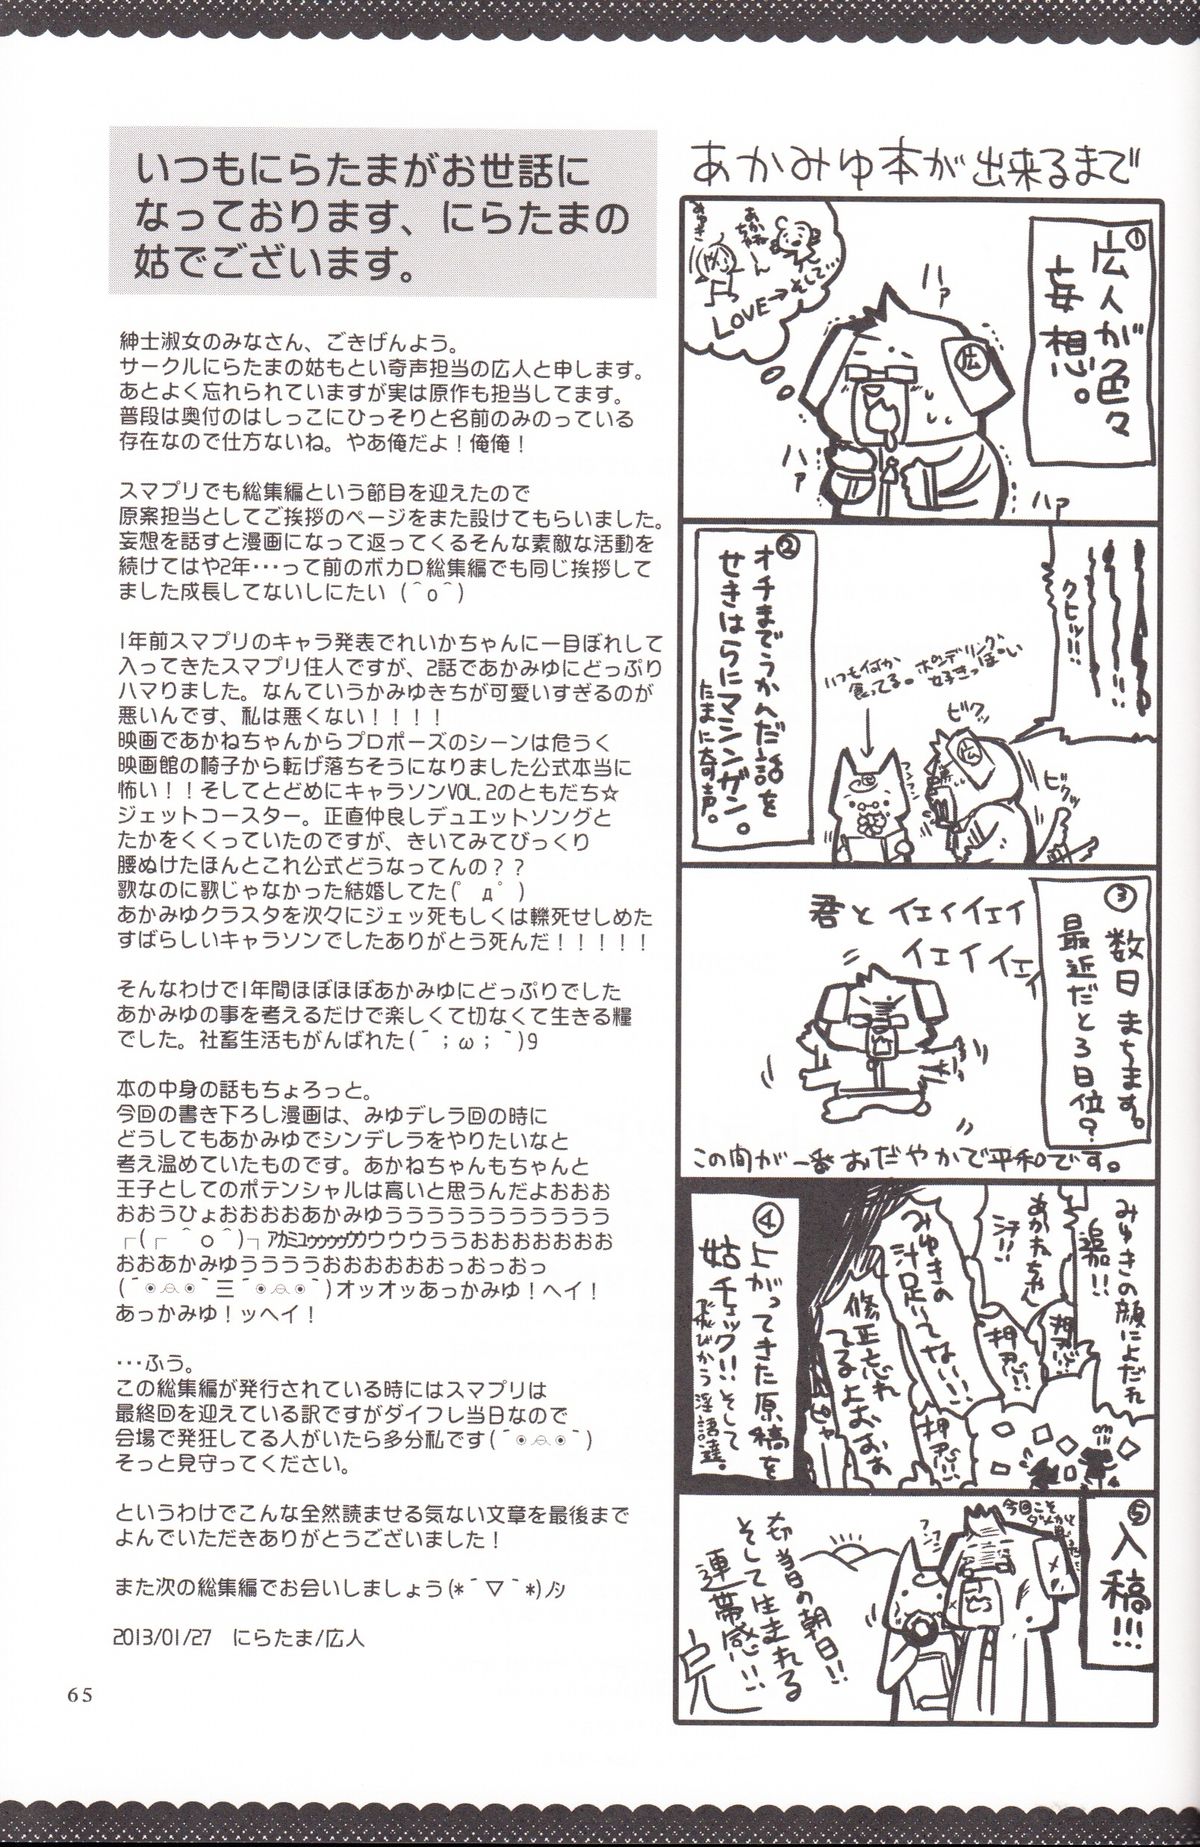 いつもにらたまがお世話に
なっております、にらたまの
姑でございます。
紳士淑女のみなさん、ごきげんよう。
サークルにらたまの姑もとい奇声担当の広人と申します。
あとよく忘れられていますが実は原作も担当してます。
普段は奥付のはしっこにひっそりと名前のみのっている
存在なので仕方ないね。やあ俺だよ！俺俺！
スマプリでも総集編という節目を迎えたので
原案担当としてご挨拶のページをまた設けてもらいました。
妄想を話すと漫画になって返ってくるそんな素敵な活動を
続けてはや2年･･･って前のボカロ総集編でも同じ挨拶して
ました成長してないしにたい（＾o＾）
1年前スマプリのキャラ発表でれいかちゃんに一目ぼれして
入ってきたスマプリ住人ですが、2話であかみゆにどっぷり
ハマりました。なんていうかみゆきちが可愛いすぎるのが
悪いんです、私は悪くない！！！！
映画であかねちゃんからプロポーズのシーンは危うく
映画館の椅子から転げ落ちそうになりました公式本当に
怖い！！そしてとどめにキャラソンVOL.2のともだち☆
ジェットコースター。正直仲良しデュエットソングと
たかをくくっていたのですが、きいてみてびっくり
腰ぬけたほんとこれ公式どうなってんの？？
歌なのに歌じゃなかった結婚してた(ﾟдﾟ)
あかみゆクラスタを次々にジェッ死もしくは轢死せしめた
すばらしいキャラソンでしたありがとう死んだ！！！！！
そんなわけで1年間ほぼほぼあかみゆにどっぷりでした
あかみゆの事を考えるだけで楽しくて切なくて生きる糧
でした。社畜生活もがんばれた(´；ω；｀)9
本の中身の話もちょろっと。
今回の書き下ろし漫画は、みゆデレラ回の時に
どうしてもあかみゆでシンデレラをやりたいなと
考え温めていたものです。あかねちゃんもちゃんと
王子としてのポテンシャルは高いと思うんだよおおお
おおうひょおおおおあかみゆうううううううううううう
┌(┌＾o＾)┐ｱｶﾐﾕｩｩｩｩｩｳｳウウウウううおおおおおおおお
おおあかみゆうううううおおおおおおっおっおっ
(´◉◞౪◟◉｀三´◉◞౪◟◉｀)オッオッあっかみゆ！ヘイ！
あっかみゆ！ッヘイ！
･･･ふう。
この総集編が発行されている時にはスマプリは
最終回を迎えている訳ですがダイフレ当日なので
会場で発狂してる人がいたら多分私です(´◉◞౪◟◉｀)
そっと見守ってください。
というわけでこんな全然読ませる気ない文章を最後まで
よんでいただきありがとうございました！
また次の総集編でお会いしましょう(*´▽｀*)ﾉｼ
2013/01/27　にらたま/広人
65
あかみゆ本が出来るまで
①広人が色々
妄想。
あかねちゃーん
みゆき
LOVE→そして…
広
ハァ
ハァ
ハァ
②オチまでうかんだ話を
せきはらにマシンガン。
たまに奇声。
クヒッ!!
いつも何か
食ってる。ポンデリング
好きっぽい
フンフン
広
ビクッ
ビクッ
③数日まちます。
最近だと3日位？
君と イェイイェイ
イェイ イェイ
この間が一番おだやかで平和です。
④上がってきた原稿を
姑チェック!!そして
飛びかう淫語達。
みゆきの顔によだれ
追加!!
あかねちゃん
汗!!
みゆきの
汁足りてない!!
修正忘れ
てるよおおお
押忍!!
押忍!!
押忍!!
⑤入稿!!!
今回こそ
ダメかと
フンフン
当日の朝日!!
そして生まれる
連帯感!!
完